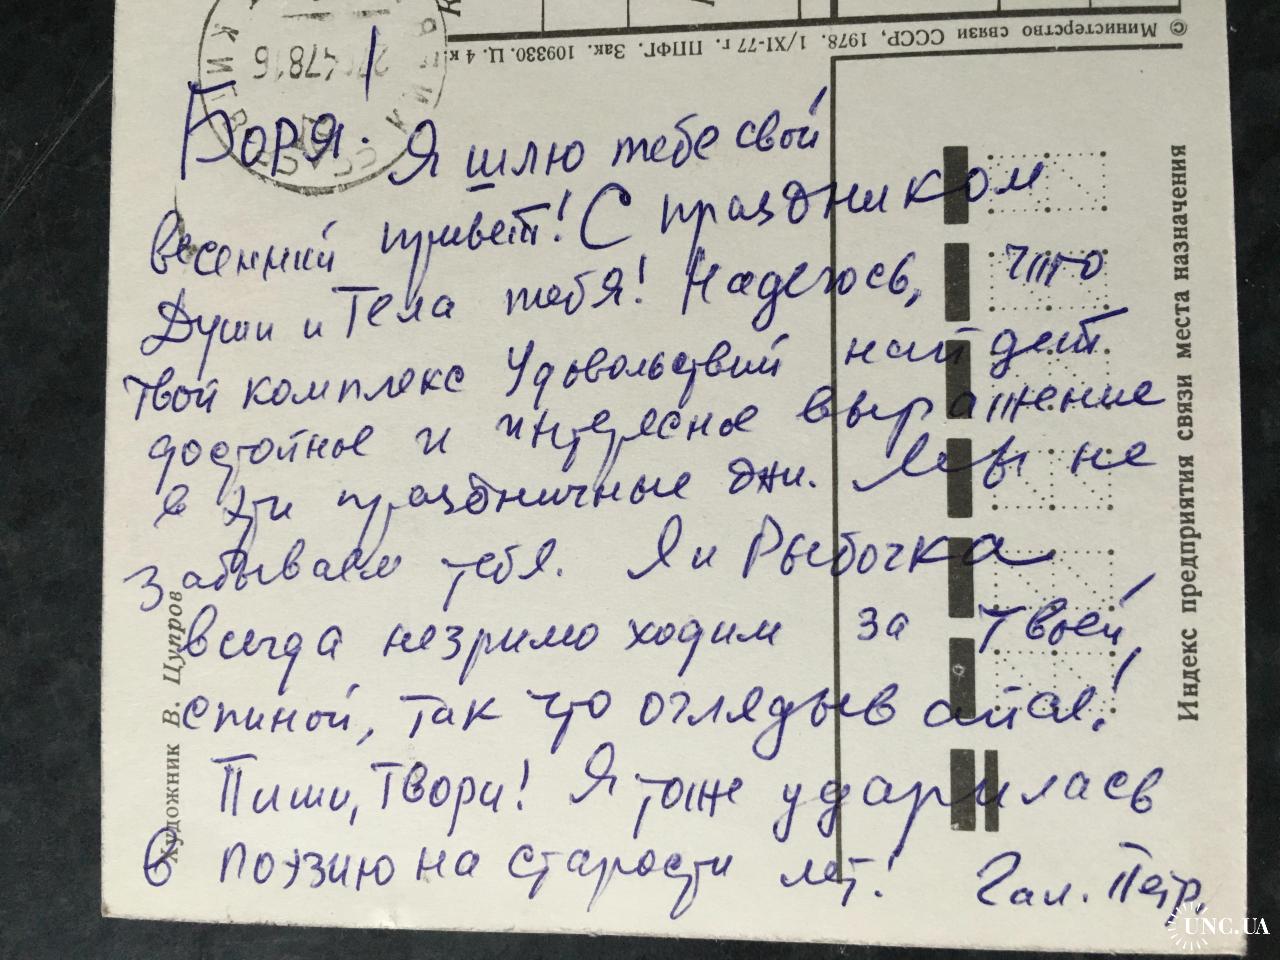 Боря! Я шлю тебе свой
весенний привет! С праздником
Души и Тела тебя! Надеюсь, что
твой комплекс Удовольствий найдет
достойное и интересное выражение
в эти праздничные дни. Мы не
забываем тебя. Я и Рыбочка
всегда незримо ходим за твоей
спиной, так что оглядывайся!
Пиши, Твори! Я тоже ударилась
в поэзию на старости лет! Гал. Петр.
© Министерство связи СССР, 1978. 1/XI-77 г. ППФГ. Зак. 109330. Ц. 4 к.
Индекс предприятия связи места назначения
Художник В. Цупров
UNC.UA